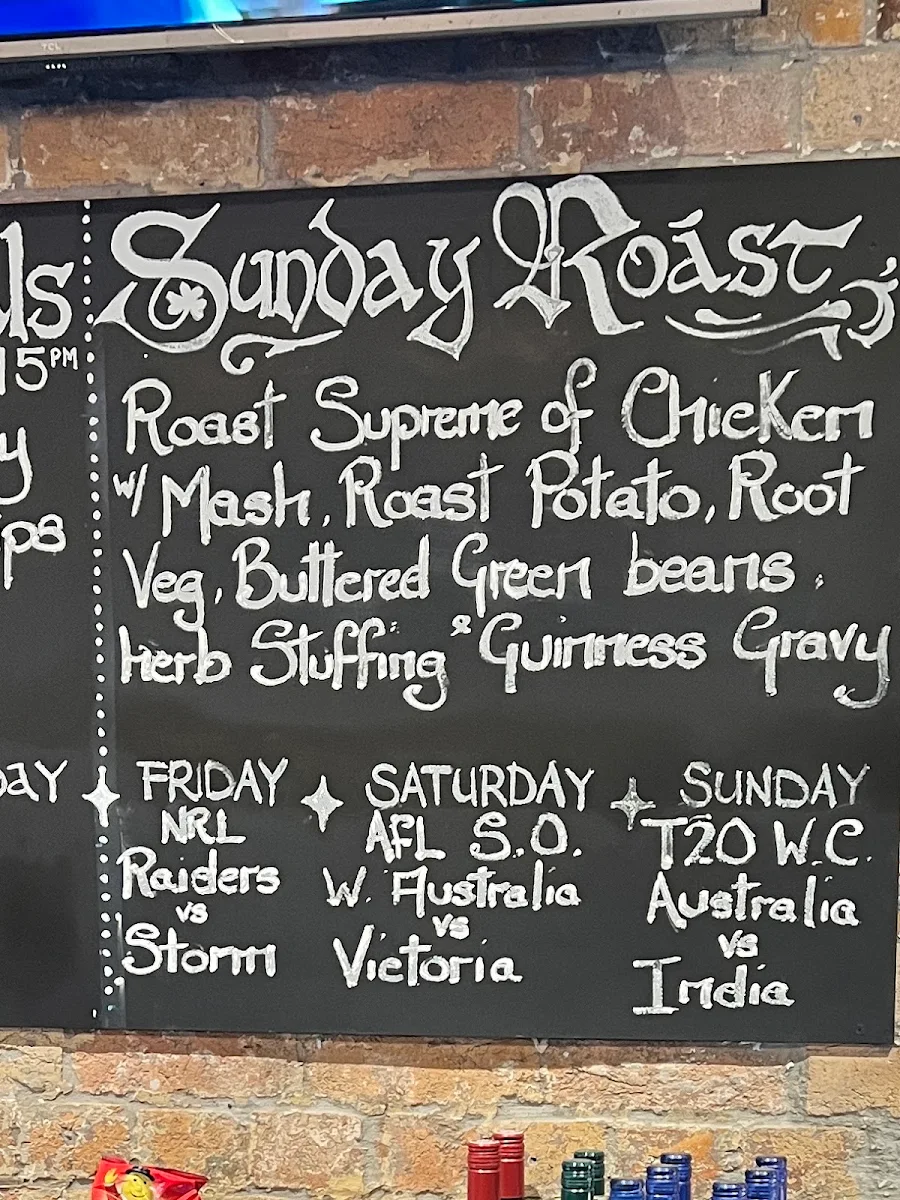 TCL
ls
15PM
y
ps
Sunday Roast
Roast Supreme of Chicken
w/ Mash, Roast Potato, Root
Veg, Buttered Green beans,
herb Stuffing & Guinness Gravy
DAY
FRIDAY
NRL
Raiders
vs
Storm
SATURDAY
AFL S.O.
W. Australia
vs
Victoria
SUNDAY
T20 W.C.
Australia
vs
India